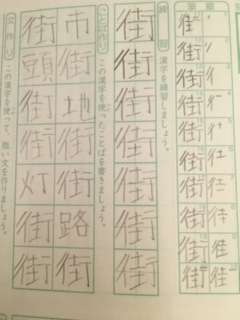 筆順
練習 漢字を練習しましょう。
街街街街街街街
ことば作り この漢字を使ったことばを書きましょう。
市街地街街路街
街頭街街灯街街
文作り この漢字を使って、短い文を作りましょう。